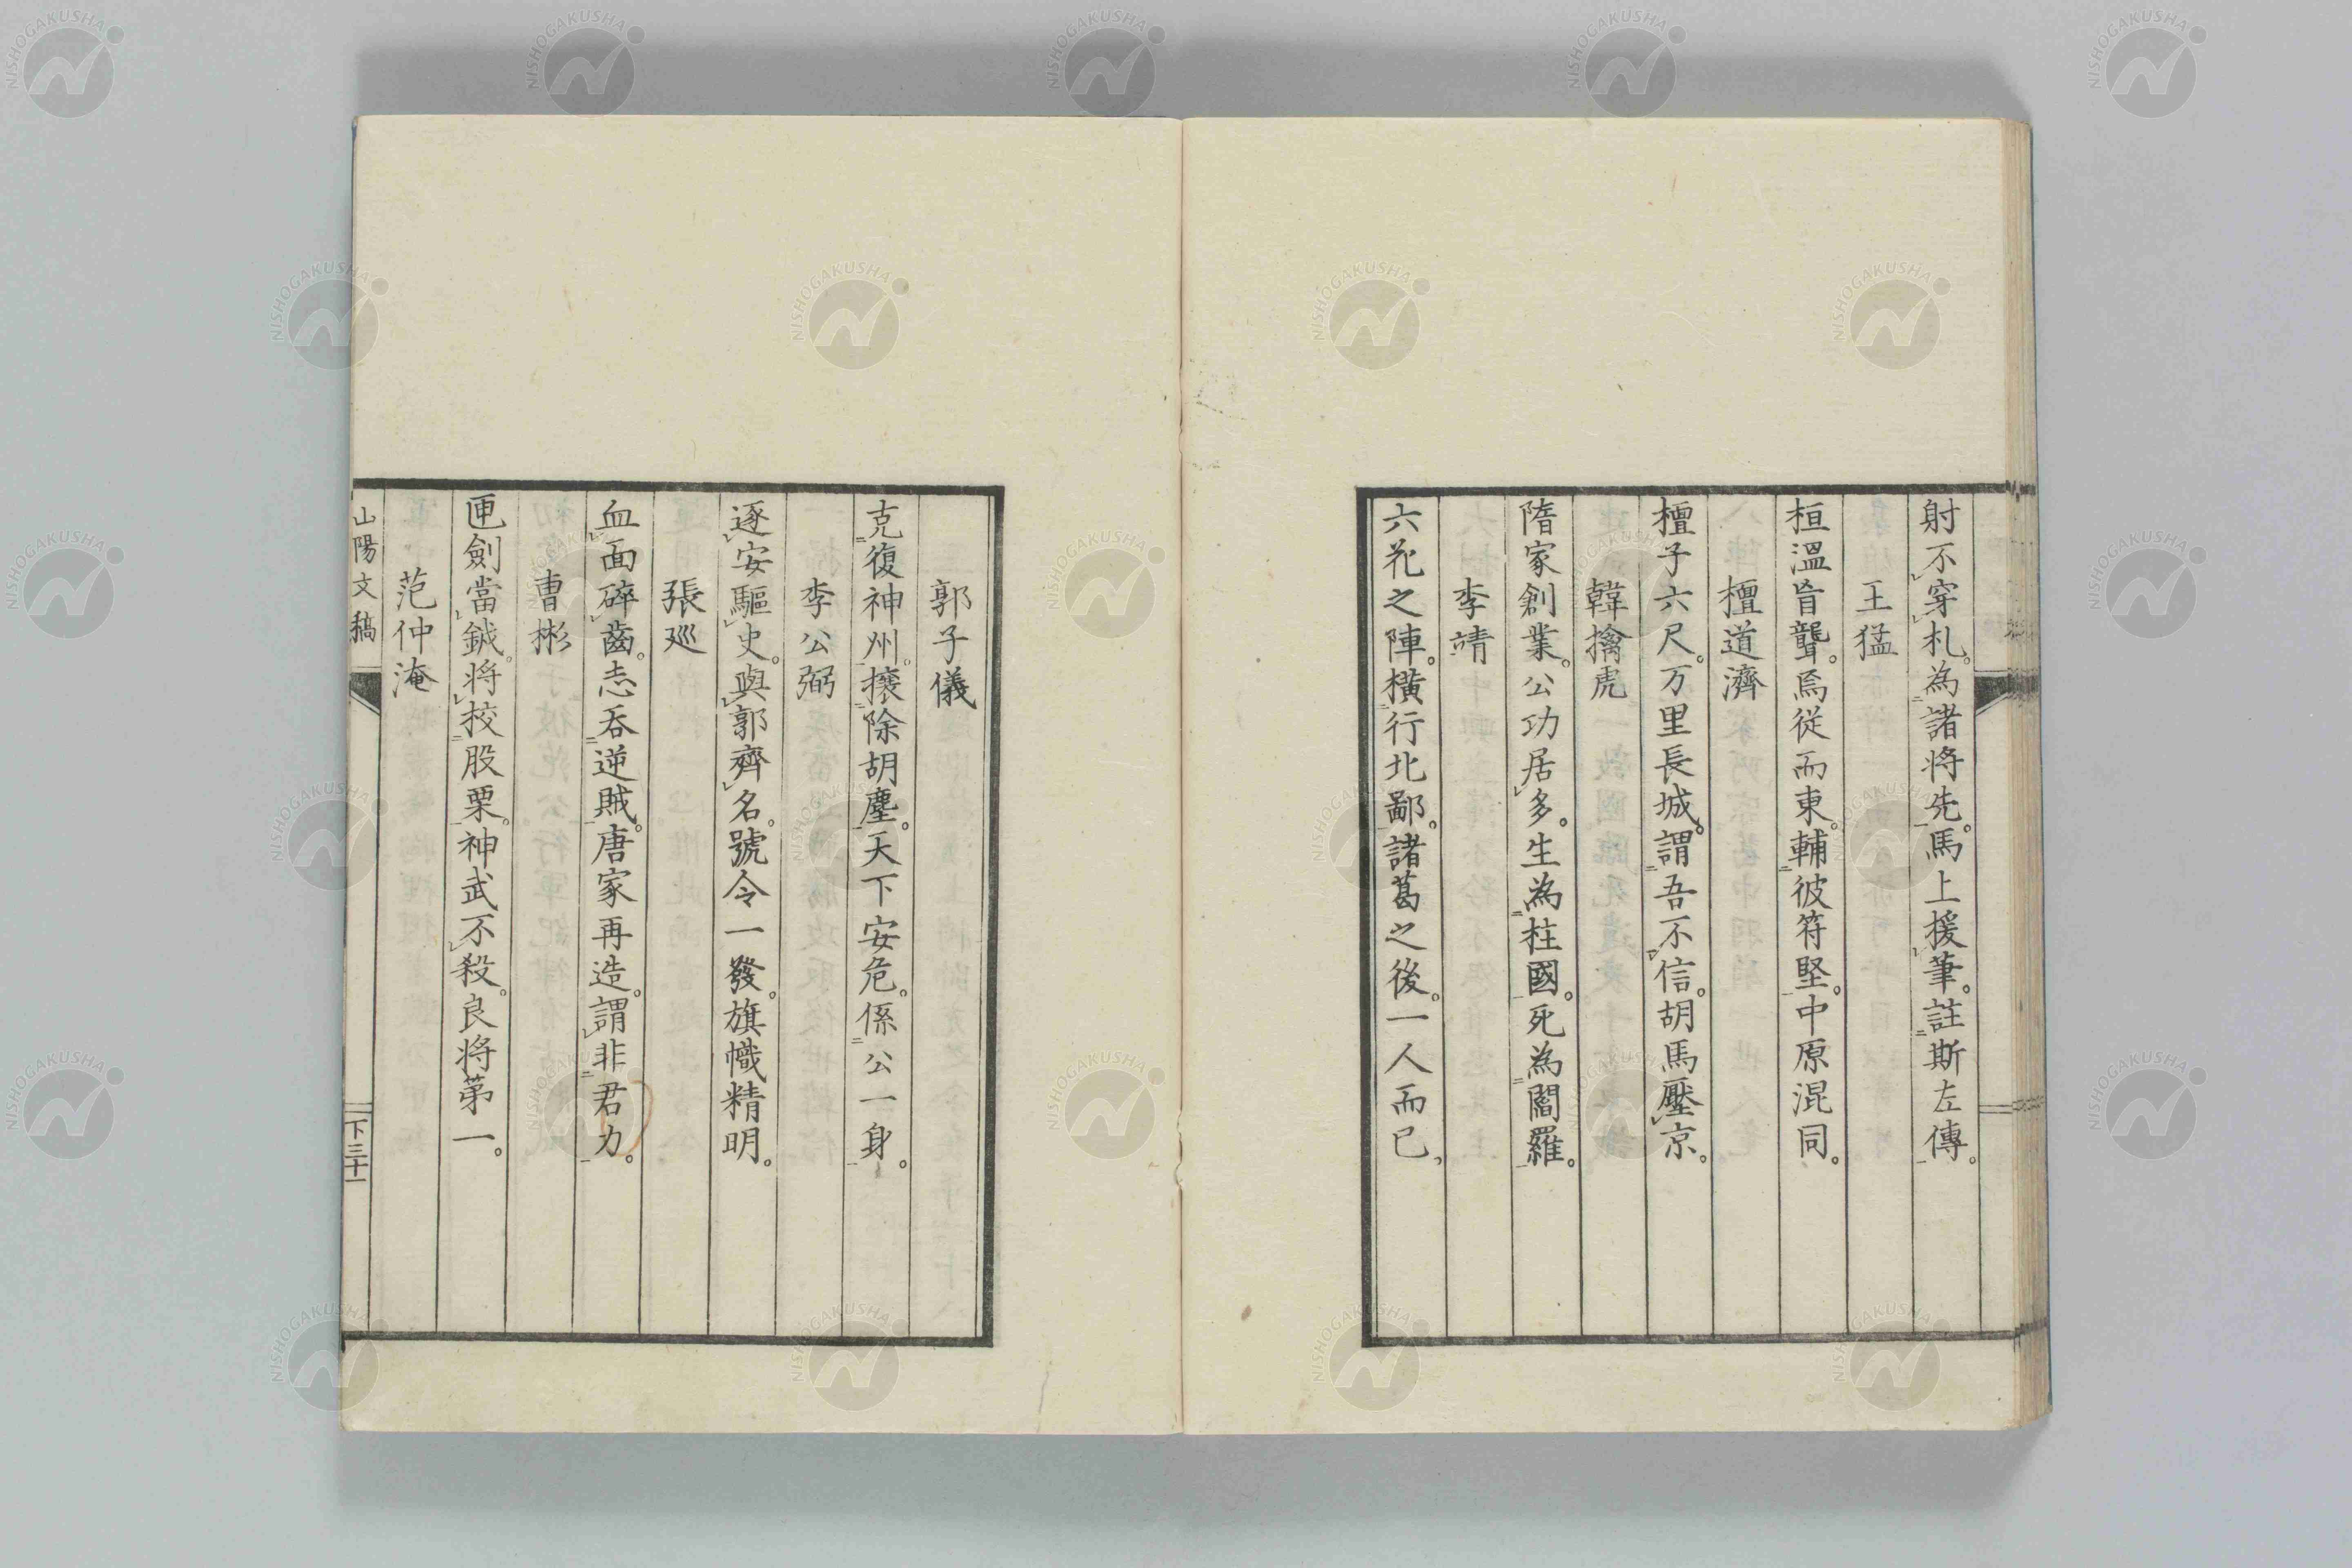 射不穿札。為諸将先。馬上援筆。註斯左傳。
王猛
桓溫盲聾。焉從而東。輔彼符堅。中原混同。
檀道濟
檀子六尺。万里長城。謂吾不信。胡馬壓京。
韓擒虎
隋家創業。公功居多。生為柱國。死為閻羅。
李靖
六花之陣。橫行北鄙。諸葛之後。一人而已。
郭子儀
克復神州。攘除胡塵。天下安危。係公一身。
李公弼
逐安驅史。與郭齊名。號令一發。旗幟精明。
張巡
血面碎齒。志吞逆賊。唐家再造。謂非君力。
曹彬
匣劍當鉞。将校股栗。神武不殺。良将第一。
范仲淹
山陽文稿
下三十一
NISHOGAKUSHA